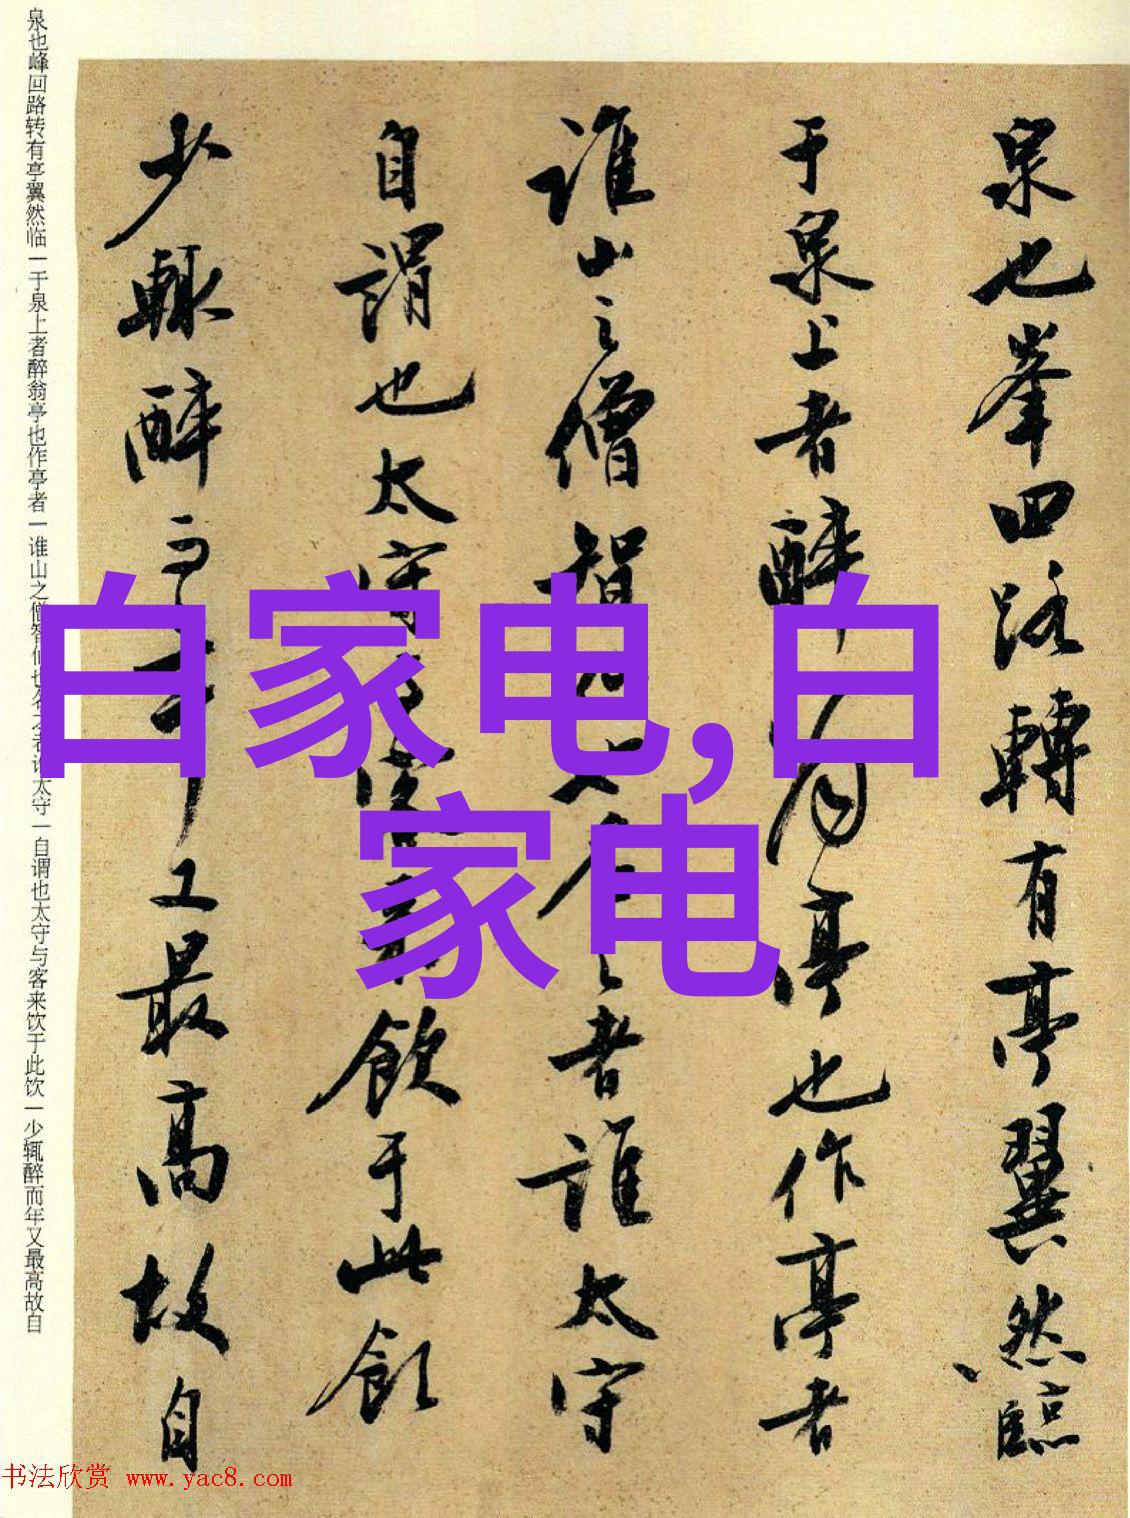 泉也峯回路轉有亭翼然臨
于泉上者醉翁亭也作亭者
誰山之僧智仙也名之者誰太守
自謂也太守與客來飲于此飲
少輒醉而年又最高故自
泉也峰回路转有亭翼然临一于泉上者醉翁亭也作亭者一谁山之僧智仙也名之者谁太守一自谓也太守与客来饮于此饮一少辄醉而年又最高故自
白家电,白
家电
书法欣赏 www.yac8.com